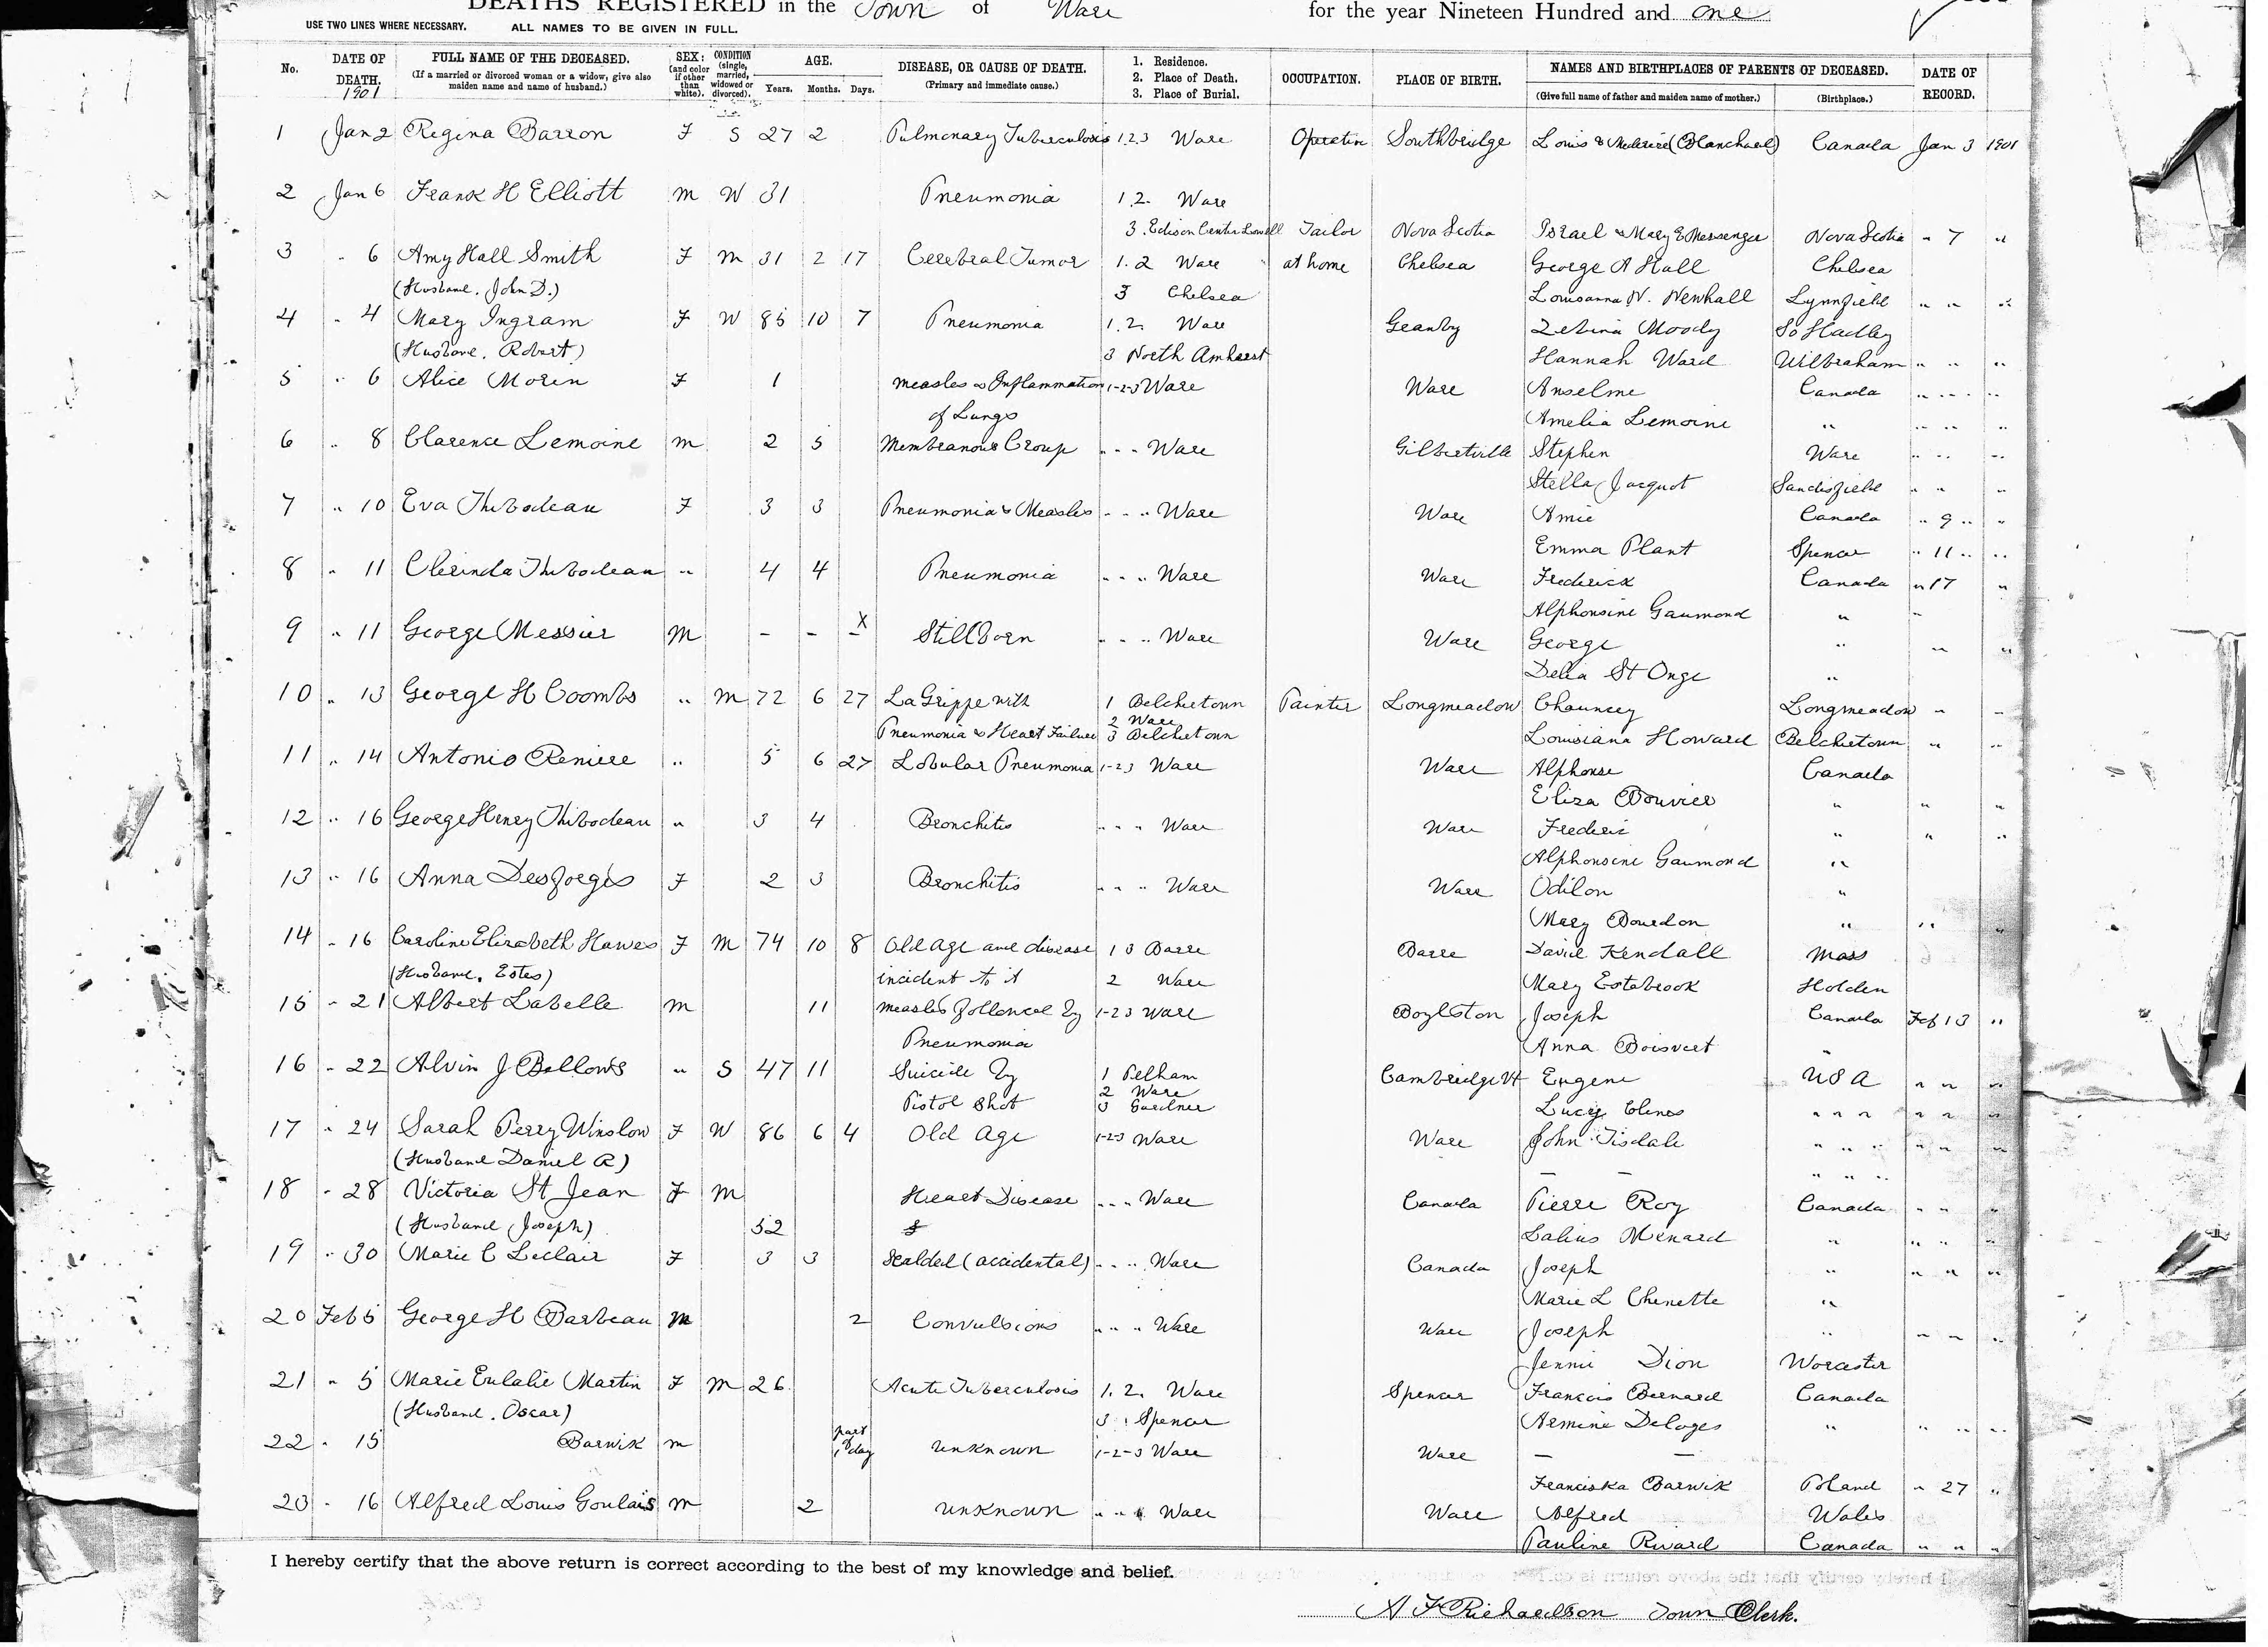 DEATHS REGISTERED in the Town of Ware for the year Nineteen Hundred and One
USE TWO LINES WHERE NECESSARY. ALL NAMES TO BE GIVEN IN FULL.
No. DATE OF DEATH. 1901 FULL NAME OF THE DECEASED. (If a married or divorced woman or a widow, give also maiden name and name of husband.) SEX: (and color if other than white). CONDITION (single, married, widowed or divorced). AGE. Years. Months. Days. DISEASE, OR CAUSE OF DEATH. (Primary and immediate cause.) 1. Residence. 2. Place of Death. 3. Place of Burial. OCCUPATION. PLACE OF BIRTH. NAMES AND BIRTHPLACES OF PARENTS OF DECEASED. (Give full name of father and maiden name of mother.) (Birthplace.) DATE OF RECORD.
1 Jan 2 Regina Barron F S 27 2 Pulmonary Tuberculosis 1.2.3 Ware Southbridge Louis & (Blanchard) Canada Jan 3 1901
2 Jan 6 Frank H Elliott M W 31 Pneumonia 1.2. Ware
3. Edison Center Lowell Tailor Nova Scotia Israel & Mary E Messenger Nova Scotia " 7 "
3 " 6 Amy Hall Smith F M 31 2 17 Cerebral Tumor 1.2 Ware at home Chelsea George A Hall Chelsea
(Husband. John D.) 3 Chelsea Louisanna N. Newhall Lynnfield " " "
4 " 4 Mary Ingram F W 85 10 7 Pneumonia 1.2. Ware Granby Zebina Moody So Hadley
(Husband. Robert) 3 North Amherst Hannah Ward Wilbraham " " "
5 " 6 Alice Morin F 1 Measles & Inflammation 1-2-3 Ware Ware Anselme Canada " " " "
of Lungs Amelia Lemoine " " " "
6 " 8 Clarence Lemoine M 2 5 Membranous Croup " " " Ware Gilbertville Stephen Ware " " "
Stella Jacquot Sandisfield " " "
7 " 10 Eva Thibodeau F 3 3 Pneumonia & Measles " " " Ware Ware Amie Canada " 9 " "
Emma Plant Spencer " 11 " "
8 " 11 Clerinda Thibodeau " 4 4 Pneumonia " " " Ware Ware Frederick Canada " 17 "
Alphonsine Gaumond " "
9 " 11 George Messier M - - - X Stillborn " " " Ware Ware George " " "
Delia St Onge "
10 " 13 George H Coombs " M 72 6 27 La Grippe with 1 Belchertown Painter Longmeadow Chauncey Longmeadow " "
2 Ware
Pneumonia & Heart Failure 3 Belchertown Louisiana Howard Belchertown " "
11 " 14 Antonio Reniere " 5 6 27 Lobular Pneumonia 1-2-3 Ware Ware Alphonse Canada
Eliza Bouvier " " "
12 " 16 George Henry Thibodeau " 3 4 Bronchitis " " " Ware Ware Frederic " " "
Alphonsine Gaumond "
13 " 16 Anna Desforges F 2 3 Bronchitis " " " Ware Ware Odilon "
Mary Bourdon " " "
14 " 16 Caroline Elizabeth Hawes F M 74 10 8 Old Age and disease 1 3 Barre Barre David Kendall Mass
(Husband. Estes) incident to it 2 Ware Mary Estabrook Holden
15 " 21 Albert Labelle M 11 Measles followed by 1-2 3 Ware Boylston Joseph Canada Feb 13 "
Pneumonia Anna Boisvert "
16 " 22 Alvin J Bellows " S 47 11 Suicide by 1 Pelham Cambridge Vt Eugene U S A " " "
2 Ware
Pistol Shot 3 Gardner Lucy " " " " " "
17 " 24 Sarah Perry Winslow F W 86 6 4 Old Age 1-2-3 Ware Ware John Tisdale " " " " " "
(Husband Daniel R) — — " " "
18 " 28 Victoria St Jean F M Heart Disease " " " Ware Canada Pierre Roy Canada " " "
(Husband Joseph) 52 Menard " " " "
19 " 30 Marie C Leclair F 3 3 Scalded (accidental) " " " Ware Canada Joseph " " " "
Marie L Chenette "
20 Feb 5 George H Barbeau M 2 Convulsions " " " Ware Ware Joseph " " " "
Jennie Dion Worcester
21 " 5 Marie Eulalie Martin F M 26 Acute Tuberculosis 1.2. Ware Spencer Francois Bernard Canada
(Husband. Oscar) 3 Spencer Armine Deloges " " " "
22 " 15 Barwik M part 1 day Unknown 1-2-3 Ware Ware — —
Franciska Barwik Poland " 27 "
23 " 16 Alfred Louis Goulais M 2 Unknown " " " Ware Ware Alfred Wales
Pauline Rivard Canada " " "
I hereby certify that the above return is correct according to the best of my knowledge and belief.
A F Richardson Town Clerk.